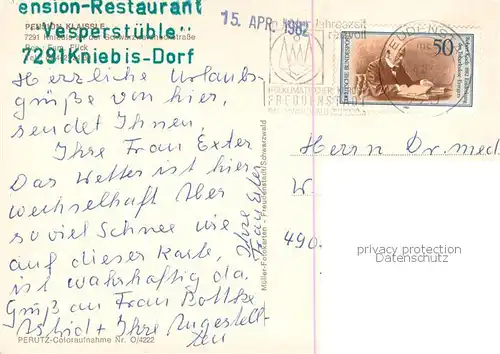 ension-Restaurant
"Vesperstüble"
7291 Kniebis-Dorf
PENSION KLAISSLE
7291 Kniebis - an der Schwarzwaldhochstraße
15. APR. 1982
DEUTSCHE BUNDESPOST
50
HEILKLIMATISCHER KURORT
FREUDENSTADT
Herzliche Urlaubs-
grüße von hier,
sendet Ihnen,
Ihre Frau Exter
Das Wetter ist hier
wechselhaft Aber
soviel Schnee wie
auf dieser Karte,
ist wahrhaftig da.
Gruß an Frau Bottke
Astrid + Ihre Angestell-
ten
Ihre
Frau Exter
Müller-Fotokarten · Freudenstadt/Schwarzwald
PERUTZ-Coloraufnahme Nr. O/4222
Herrn Dr. med.
W.
490.
privacy protection
Datenschutz